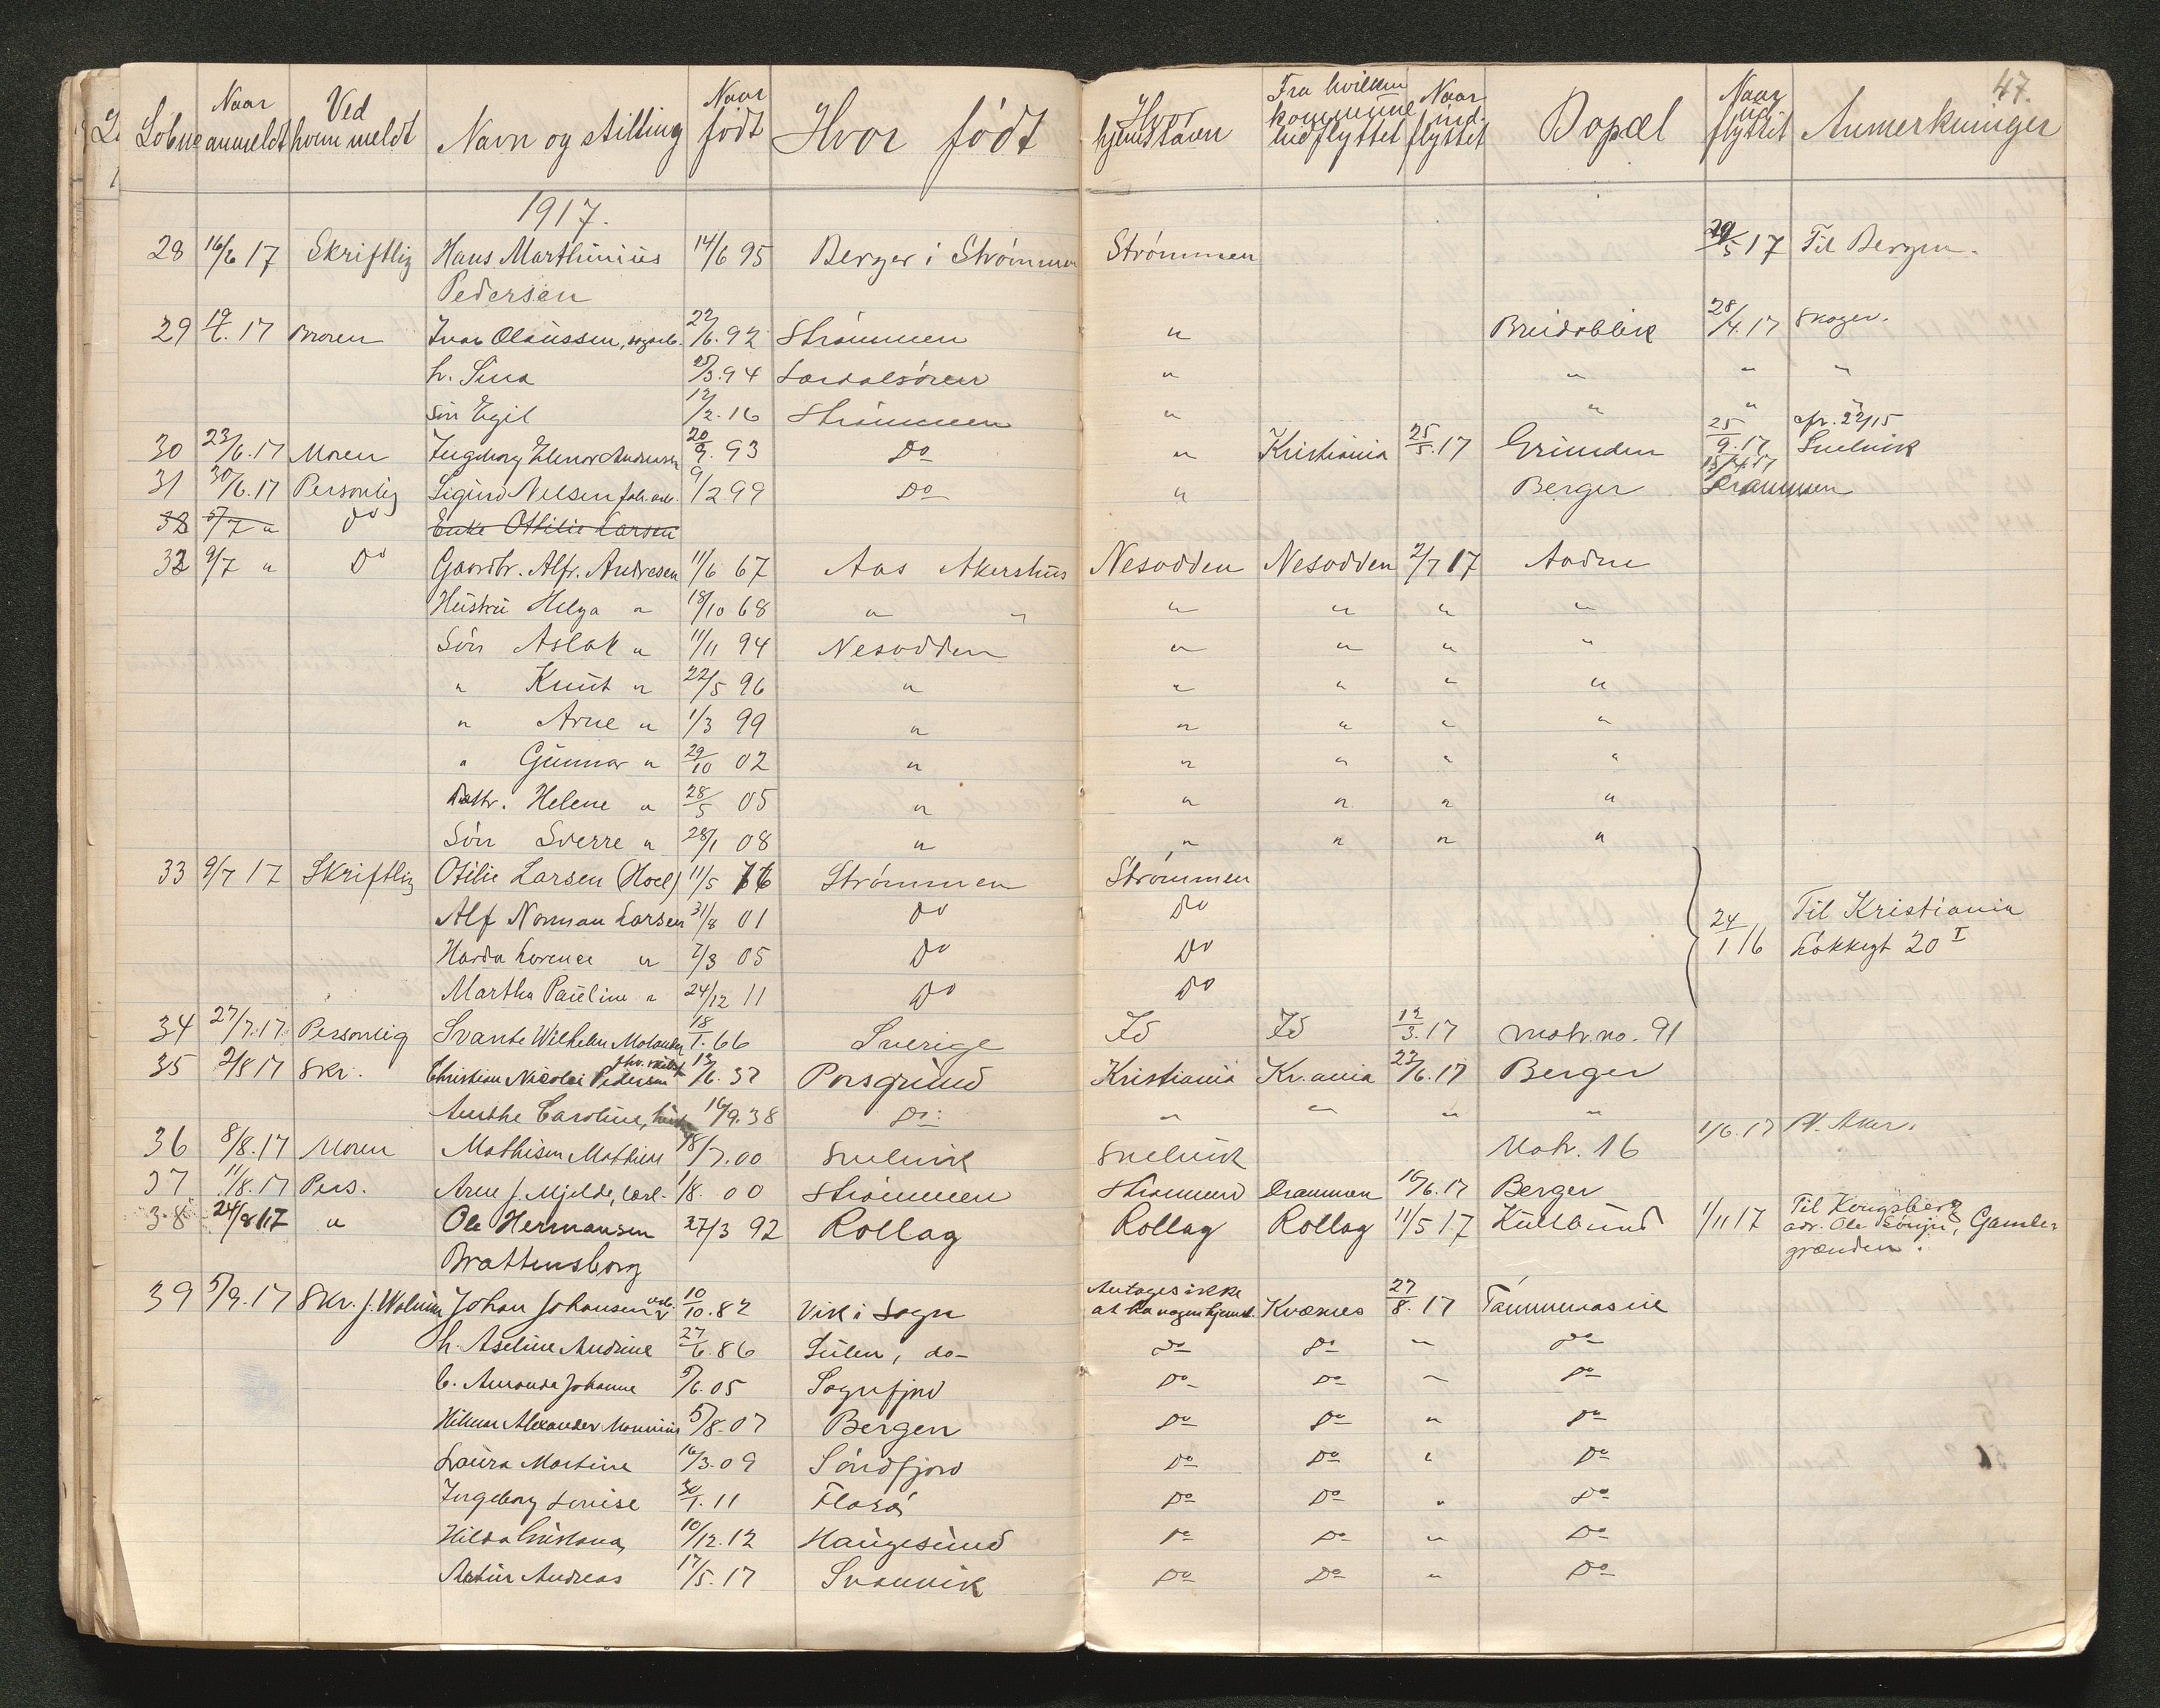 47.
Løbno Naar anmeldt Ved hvem meldt Navn og stilling Naar født Hvor født Hvor hjemstavn Fra hvilken kommune indflyttet Naar ind flyttet Bopæl Naar ud flyttet Anmerkninger
1917.
28 16/6 17 Skriftlig Hans Marthinius 14/6 95 Berger i Strømmen Strømmen 29/5 17 Til Bergen.
Pedersen
29 19/6.17 Moren Ivar Olaussen, 22/6.92 Strømmen " Breidablik 28/4.17 Skoger.
h. Lina 25/3.94 Lærdalsøren " " " "
søn Egil 12/2.16 Strømmen " " "
30 23/6.17 Moren Ingeborg Elenor Andresen 20/9.93 Do " Kristiania 25/5.17 Grunden 25/9.17 cfr. 22/15 Svelvik
31 30/6.17 Personlig Sigurd Nilsen fab. arb. 9/2 99 Do " Berger 15/4.17 Drammen
32 5/7 " Do Enke Othilie Larsen
32 9/7 " Do Gaardbr. Alfr. Andresen 11/6 67 Aas Akershus Nesodden Nesodden 2/7 17 Aadne
Hustru Helga " 18/10 68 " " " " " "
Søn Aslak " 11/11 94 Nesodden " " " "
" Knut " 22/5 96 " " " " "
" Arne " 1/3 99 " " " " "
" Gunnar " 29/10 02 " " " " "
Dattr. Helene " 28/5 05 " " " " "
Søn Sverre " 28/1 08 " " " " "
33 9/7 17 Skriftlig Otilie Larsen (Hoel) 11/5 76 Strømmen Strømmen
Alf Norman Larsen 31/8 01 Do Do 24/1 16 Til Kristiania
Harda Lorence " 7/3 05 Do Do Løkkegt 20 I
Martha Pauline " 24/12 11 Do Do
34 27/7.17 Personlig Svante Wilhelm Molander 18/1.66 Sverige Id Id 12/3.17 matr. no. 91
35 2/8 17 Skr. Christian Nicolai Pedersen 13/6.37 Porsgrund Kristiania Kr.ania 22/6.17 Berger
Anthe Caroline, 16/9.38 Do: " " " "
36 8/8.17 Moren Mathisen Mathias 18/7.00 Svelvik Svelvik Matr. 16 1/6.17 V. Aker.
37 11/8.17 Pers. Arne J. Mjelde, 1/8. 00 Strømmen Strømmen Drammen 16/6.17 Berger
38 24/8 17 " Ole Hermansen 27/3 92 Rollag Rollag Rollag 11/5 17 Kullbund 1/11 17 Til Kongsberg
adr. Ole Gamle-
Brattensborg grænden.
39 5/9.17 Skr. J. Johan Johansen arb. 10/10.82 Vik i Sogn Antages ikke at ha nogen hjemst. Kvænes 27/8.17 Tømmeraas
h. Aseline Andrine 27/6.86 Sulen, do- do do " do
b. Amanda Johanne 5/6.05 Sognfjord Do Do " Do
Hilmar Alexander 5/8.07 Bergen Do Do " Do
Laura Martine 16/3.09 Søndfjord Do Do " Do
Ingeborg Louise 30/1.11 Florø Do Do " Do
Hilda 10/12.12 Haugesund Do Do " Do
Artur Andreas 17/5.17 Svanvik Do Do " Do